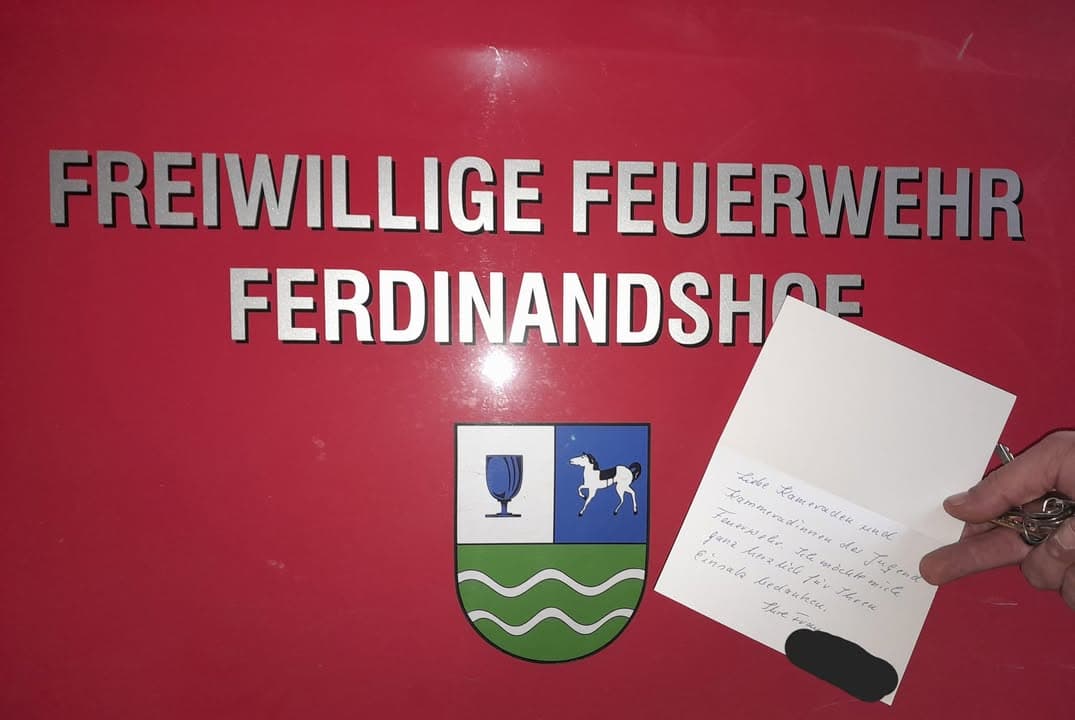 FREIWILLIGE FEUERWEHR
FERDINANDSHOF
Liebe Kameraden und
Kammeradinnen der Jugend
Feuerwehr. Ich möchte mich
ganz herzlich für Ihren
Einsatz bedanken.
Ihre Frau